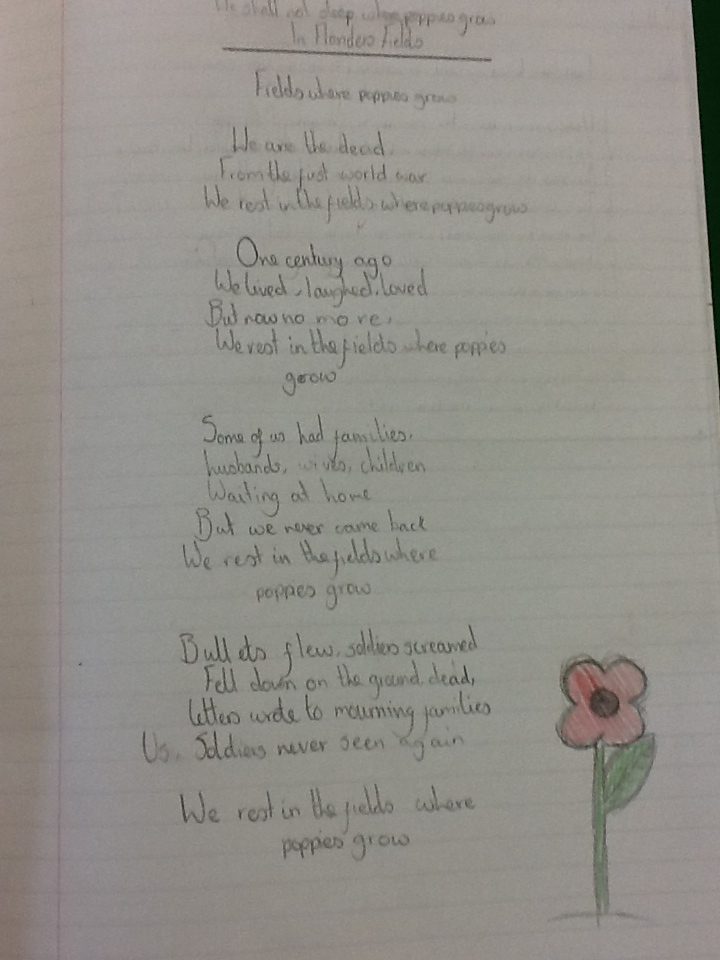 We shall not sleep, where poppies grow
In Flanders Fields
Fields where poppies grow
We are the dead.
From the fust world war
We rest in the fields where poppies grow
One century ago
We lived, laughed, loved
But now no more,
We rest in the fields where poppies
gerow
Some of us had families,
husbands, wives, children
Waiting at home
But we never came back
We rest in the fields where
poppies grow
Bullets flew, soldiers screamed
Fell down on the ground, dead,
letters wrote to mourning families
Us, Soldiers never seen again
We rest in the fields where
poppies grow